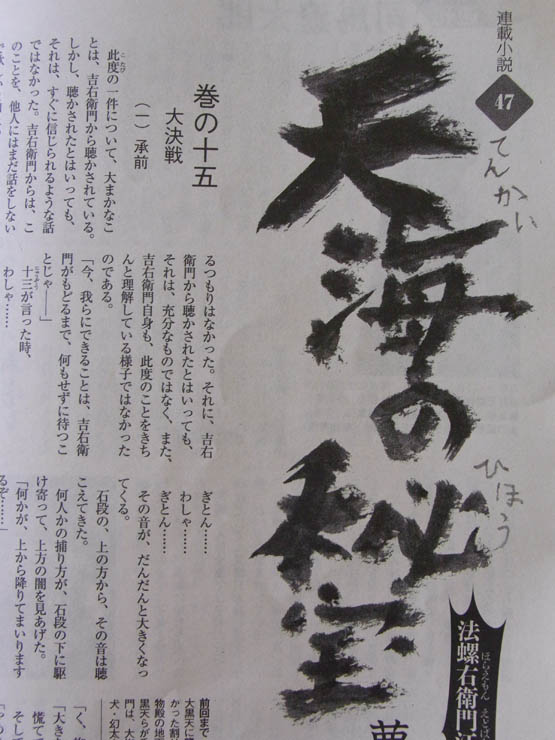 連載小説
47
天海の秘宝
てんかい
ひほう
法螺右衛門
ほらえもん
夢
巻の十五
大決戦
(一)承前
此度の一件について、大まかなこ
とは、吉右衛門から聴かされている。
しかし、聴かされたとはいっても、
それは、すぐに信じられるような話
ではなかった。吉右衛門からは、こ
のことを、他人にはまだ話をしない
るつもりはなかった。それに、吉右
衛門から聴かされたとはいっても、
それは、充分なものではなく、また、
吉右衛門自身も、此度のことをきち
んと理解している様子ではなかった
のである。
「今、我らにできることは、吉右衛
門がもどるまで、何もせずに待つこ
とじゃ――」
十三が言った時、
わしゃ……
ぎとん……
わしゃ……
ぎとん……
その音が、だんだんと大きくなっ
てくる。
石段の、上の方から、その音は聴
こえてきた。
何人かの捕り方が、石段の下に駆
け寄って、上方の闇を見あげた。
「何かが、上から降りてまいります
るぞ……」
前回まで